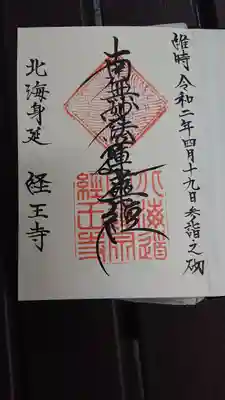 維時令和二年四月十九日参詣之砌
南無妙法蓮華経
北海身延
経王寺
北海道
経王寺